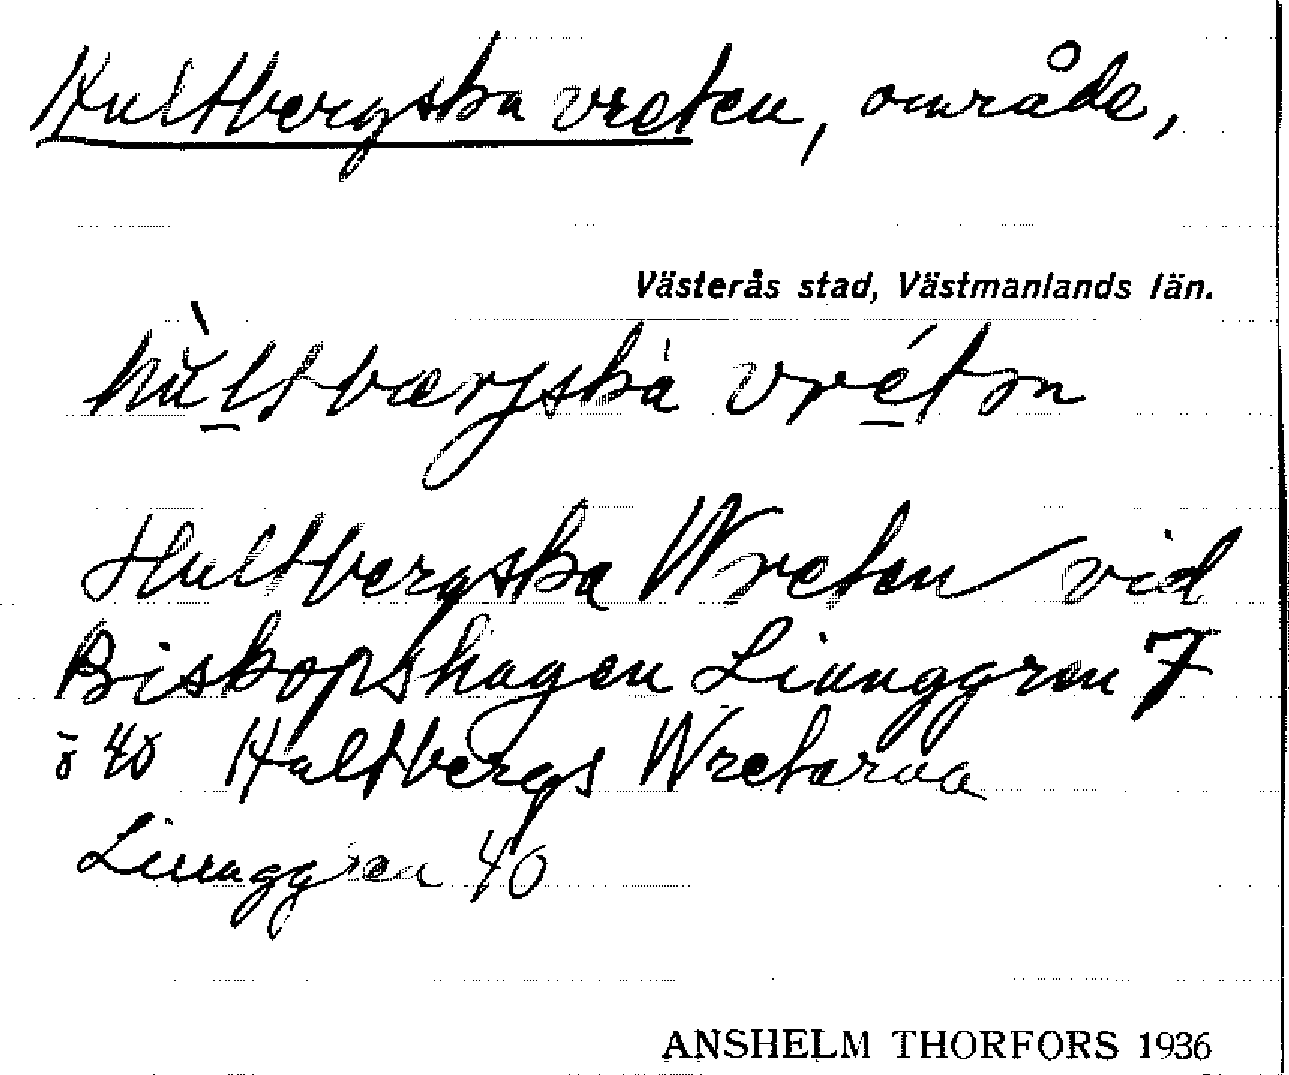 Hultbergska vreten, område,
Västerås stad, Västmanlands län.
hùltbærjskà vrétn
Hultbergska Wreten vid
Biskopshagen Linnggren 7
o 40 Hultbergs Wretarna
Linnggren 40
ANSHELM THORFORS 1936